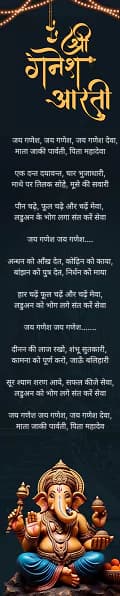 श्री
गणेश
आरती
जय गणेश, जय गणेश, जय गणेश देवा,
माता जाकी पार्वती, पिता महादेवा
एक दन्त दयावन्त, चार भुजाधारी,
माथे पर तिलक सोहे, मूसे की सवारी
पान चढ़े, फूल चढ़ें और चढ़ें मेवा,
लडुअन के भोग लगा संत करें सेवा
जय गणेश जय गणेश....
अन्धन को आँख देत, कोढ़िन को काया,
बांझन को पुत्र देत, निर्धन को माया
हार चढ़ें फूल चढ़ें और चढ़ें मेवा,
लडुअन को भोग लगे संत करें सेवा
जय गणेश जय गणेश........
दीनन की लाज रखो, शंभू सूतकारी,
कामना को पूर्ण करो, जाऊँ बलिहारी
सूर श्याम शरण आये, सफल कीजे सेवा,
लडुअन को भोग लगे संत करें सेवा
जय गणेश जय गणेश, जय गणेश देवा,
माता जाकी पार्वती, पिता महादेवा